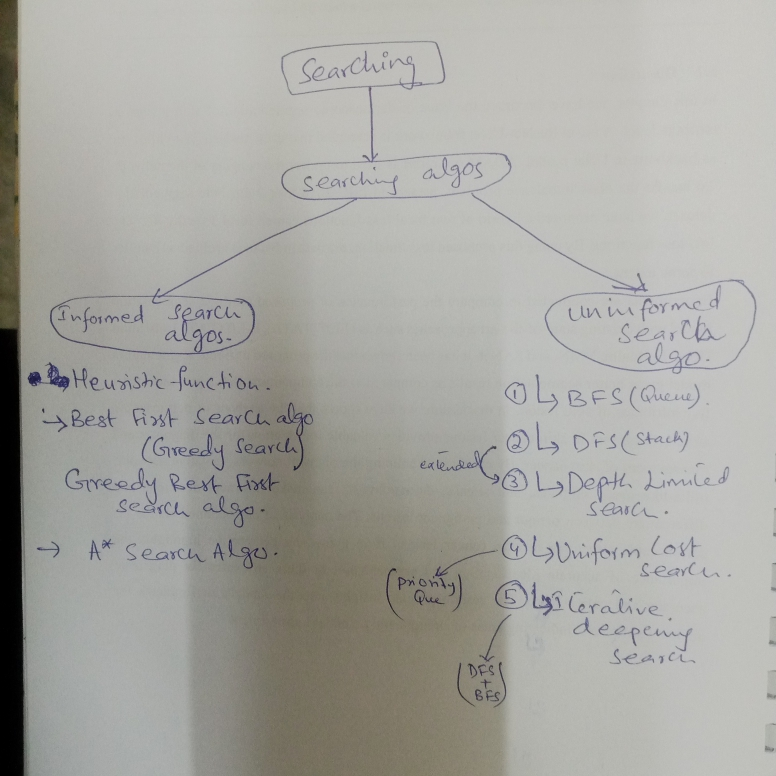 Searching
Searching algos
Informed Search
algos.
Heuristic function.
→ Best First Search algo
(Greedy Search)
Greedy Best First
search algo.
→ A* Search Algo.
Uninformed
Search
algo.
① ↳ BFS (Queue).
② ↳ DFS (Stack)
extended
③ ↳ Depth Limited
Search.
④ ↳ Uniform Cost
search.
(Priority
Que)
⑤ ↳ Iterative
deepening
search
(DFS
+
BFS)